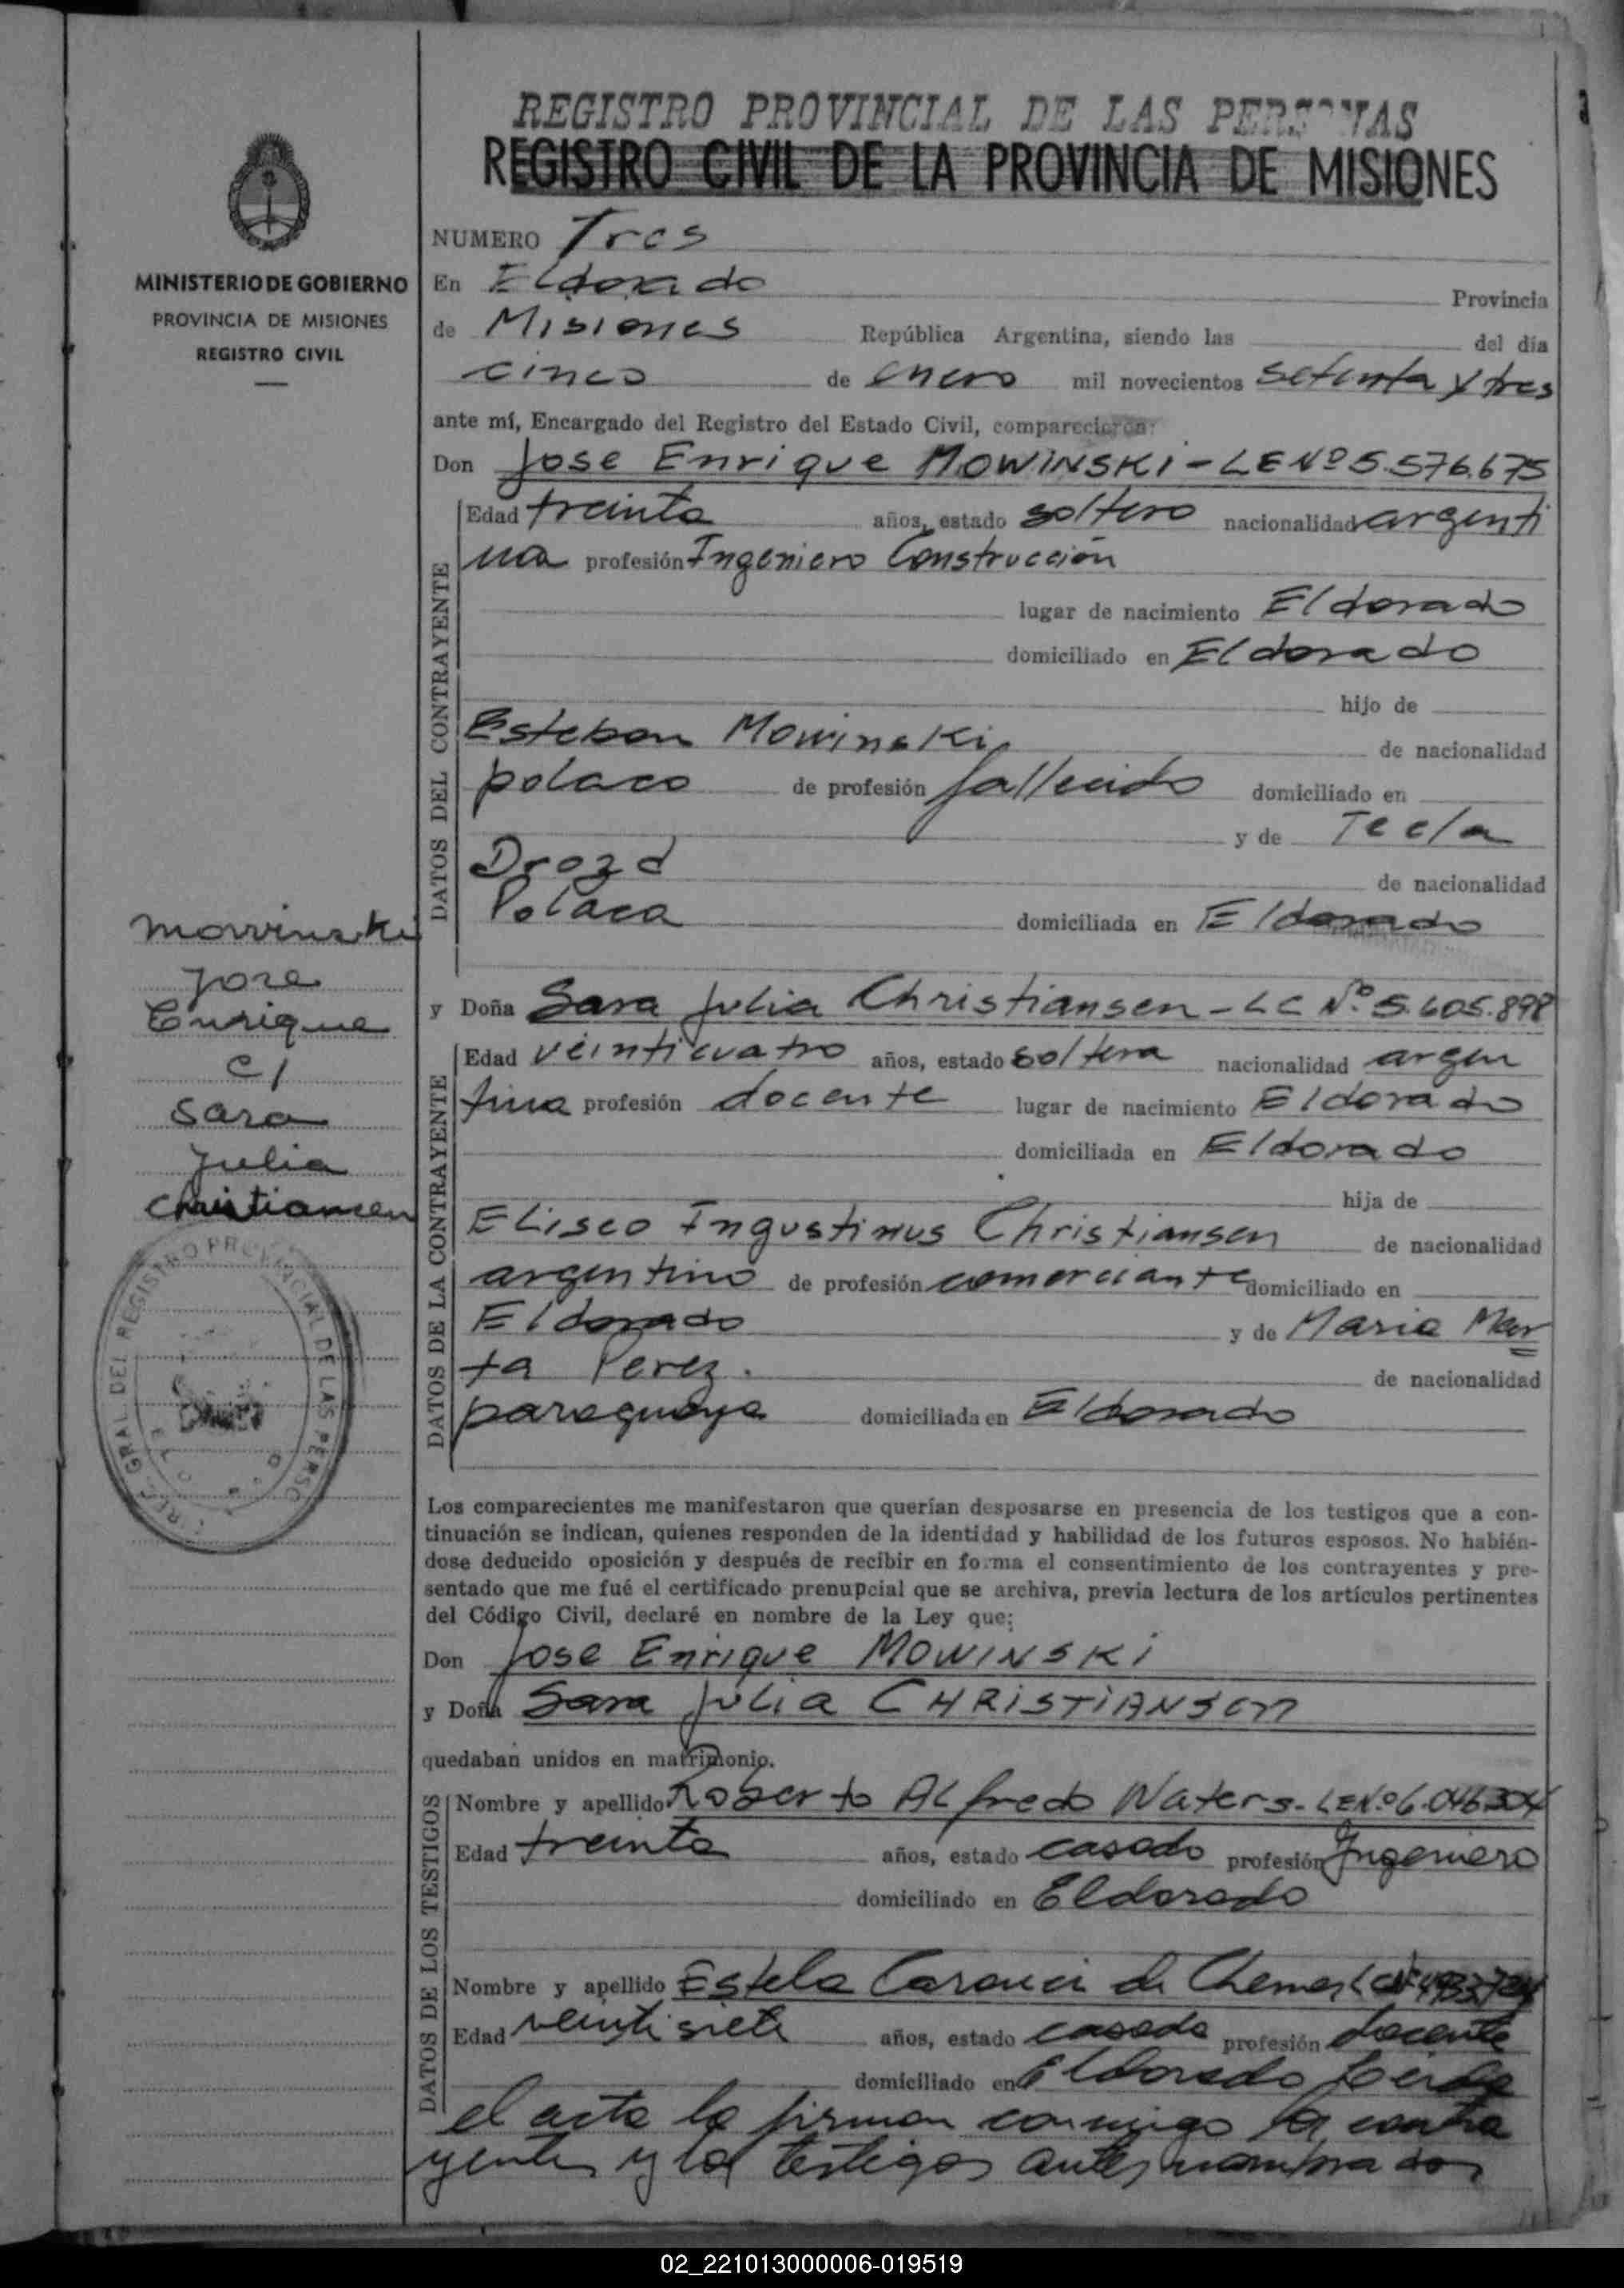 REGISTRO PROVINCIAL DE LAS PERSONAS
REGISTRO CIVIL DE LA PROVINCIA DE MISIONES
MINISTERIO DE GOBIERNO
PROVINCIA DE MISIONES
REGISTRO CIVIL
NUMERO Tres
En Eldorado Provincia
de Misiones República Argentina, siendo las del día
cinco de enero mil novecientos setenta y tres
ante mí, Encargado del Registro del Estado Civil, comparecieron:
Don Jose Enrique MOWINSKI - LE Nº 5.576.675
DATOS DEL CONTRAYENTE
Edad treinta años, estado soltero nacionalidad argenti
na profesión Ingeniero Construcción
lugar de nacimiento Eldorado
domiciliado en Eldorado
hijo de
Esteban Mowinski de nacionalidad
polaco de profesión fallecido domiciliado en
y de Tecla
Drozd de nacionalidad
Polaca domiciliada en Eldorado
Mowinski
Jose
Enrique
c/
Sara
Julia
Christiansen
y Doña Sara Julia Christiansen - LC Nº 5.605.898
DATOS DE LA CONTRAYENTE
Edad veinticuatro años, estado soltera nacionalidad argen
tina profesión docente lugar de nacimiento Eldorado
domiciliada en Eldorado
hija de
Eliseo Ingustinus Christiansen de nacionalidad
argentino de profesión comerciante domiciliado en
Eldorado y de Maria Mar
ta Perez. de nacionalidad
paraguaya domiciliada en Eldorado
GRAL. DEL REGISTRO PROVINCIAL DE LAS PERSO
Los comparecientes me manifestaron que querían desposarse en presencia de los testigos que a con-
tinuación se indican, quienes responden de la identidad y habilidad de los futuros esposos. No habién-
dose deducido oposición y después de recibir en forma el consentimiento de los contrayentes y pre-
sentado que me fué el certificado prenupcial que se archiva, previa lectura de los artículos pertinentes
del Código Civil, declaré en nombre de la Ley que:
Don Jose Enrique MOWINSKI
y Doña Sara Julia CHRISTIANSEN
quedaban unidos en matrimonio.
DATOS DE LOS TESTIGOS
Nombre y apellido Roberto Alfredo Waters - LE Nº 6.046.304
Edad treinta años, estado casado profesión Ingeniero
domiciliado en Eldorado
Nombre y apellido Estela de Chemes LC Nº
Edad veintisiete años, estado casada profesión docente
domiciliado en Eldorado Leida
el acta la firman conmigo los contra
yentes y los testigos antes nombrados
02_221013000006-019519